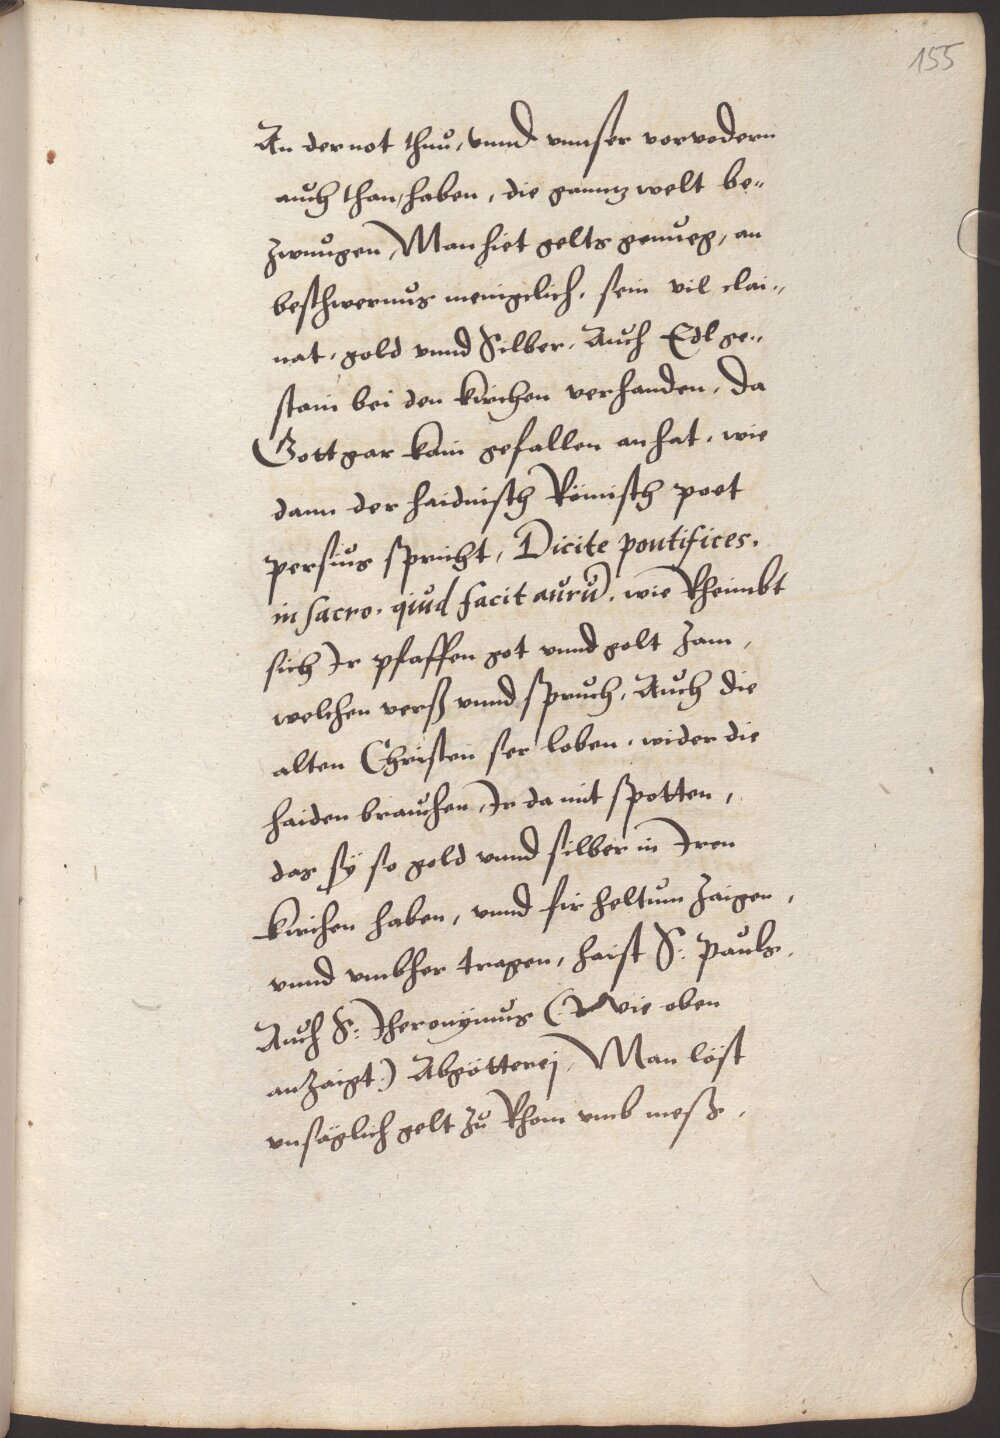 155
An der not thuu, vnnd vnnser vorvodern
auch than haben, die ganntz welt be„
zwungen, Man hiet gelts genueg, an
beschwernus menigclich, sein vil clai„
nat, gold vnnd Silber, Auch Edl ge„
stain bei den kirchen verhanden, da
Gott gar kain gefallen an hat, wie
dann der haidnisch Römisch poet
persius spricht, Dicite pontifices.
in sacro. quid facit aurū. wie Rheimbt
sich Ir pfaffen got vnnd golt zam,
welchen verß vnnd spruch, Auch die
alten Christen ser loben, wider die
haiden brauchen, Ir damit spotten,
das sÿ so gold vnnd silber in Iren
kirchen haben, vnnd fir heltum zaigen,
vnnd vmbher tragen, haist S: pauls,
Auch S: Iheronÿmus (: Wie oben
anzaigt :) Abgötterej, Man löst
vnsäglich gelt zu Rhom vmb meß,